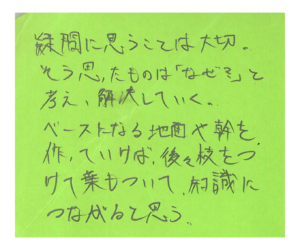 疑問に思うことは大切。
そう思ったものは「なぜ?」と
考え、解決していく。
ベースとなる地面や幹を
作っていけば、後々枝をつ
けて葉もついて、知識に
つながると思う。